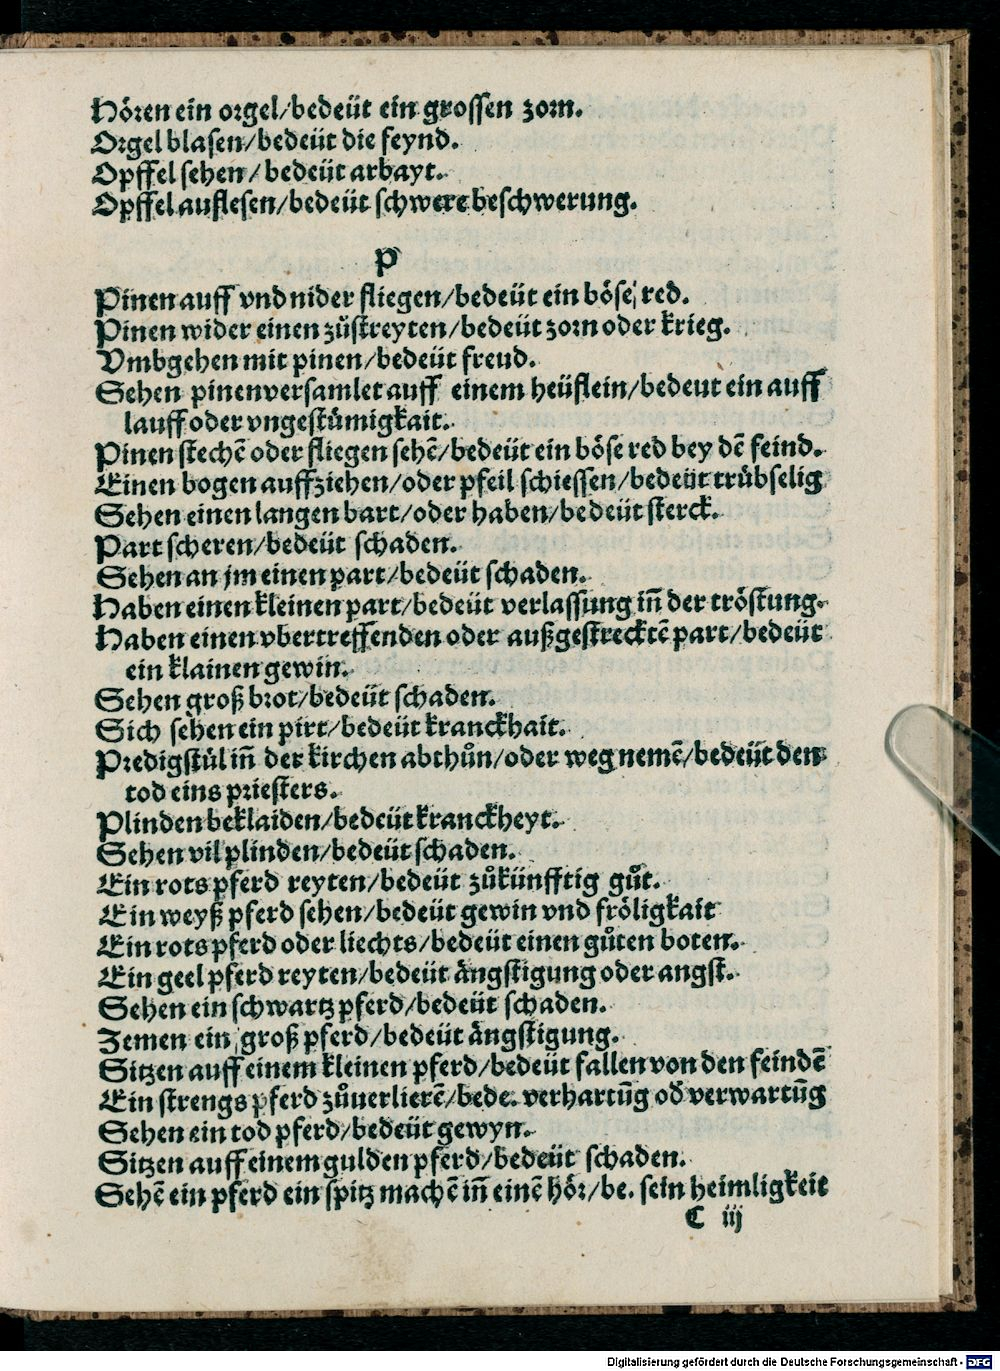 Hören ein orgel/bedeüt ein grossen zorn.
Orgel blasen/bedeüt die feynd.
Opffel sehen/bedeüt arbayt.
Opffel auflesen/bedeüt schwere beschwerung.
P
Pinen auff vnd nider fliegen/bedeüt ein böse red.
Pinen wider einen zůstreyten/bedeüt zorn oder krieg.
Vmbgehen mit pinen/bedeüt freud.
Sehen pinen versamlet auff einem heüflein/bedeut ein auff
lauff oder vngestümigkait.
Pinen stechē oder fliegen sehē/bedeüt ein böse red bey dē feind.
Einen bogen auffziehen/oder pfeil schiessen/bedeüt trübselig
Sehen einen langen bart/oder haben/bedeüt sterck.
Part scheren/bedeüt schaden.
Sehen an jm einen part/bedeüt schaden.
Haben einen kleinen part/bedeüt verlassung iñ der tröstung.
Haben einen vbertreffenden oder außgestrecktē part/bedeüt
ein klainen gewin.
Sehen groß brot/bedeüt schaden.
Sich sehen ein pirt/bedeüt kranckhait.
Predigstůl iñ der kirchen abthůn/oder weg nemē/bedeüt den
tod eins priesters.
Plinden beklaiden/bedeüt kranckheyt.
Sehen vil plinden/bedeüt schaden.
Ein rots pferd reyten/bedeüt zůkünfftig gůt.
Ein weyß pferd sehen/bedeüt gewin vnd fröligkait
Ein rots pferd oder liechts/bedeüt einen gůten boten.
Ein geel pferd reyten/bedeüt ängstigung oder angst.
Sehen ein schwartz pferd/bedeüt schaden.
Zemen ein groß pferd/bedeüt ängstigung.
Sitzen auff einem kleinen pferd/bedeüt fallen von den feindē
Ein strengs pferd zůuerlierē/bede. verhartūg od̄ verwartūg
Sehen ein tod pferd/bedeüt gewyn.
Sitzen auff einem gulden pferd/bedeüt schaden.
Sehē ein pferd ein spitz machē iñ einē hör/be. sein heimligkeit
C iij
Digitalisierung gefördert durch die Deutsche Forschungsgemeinschaft - DFG